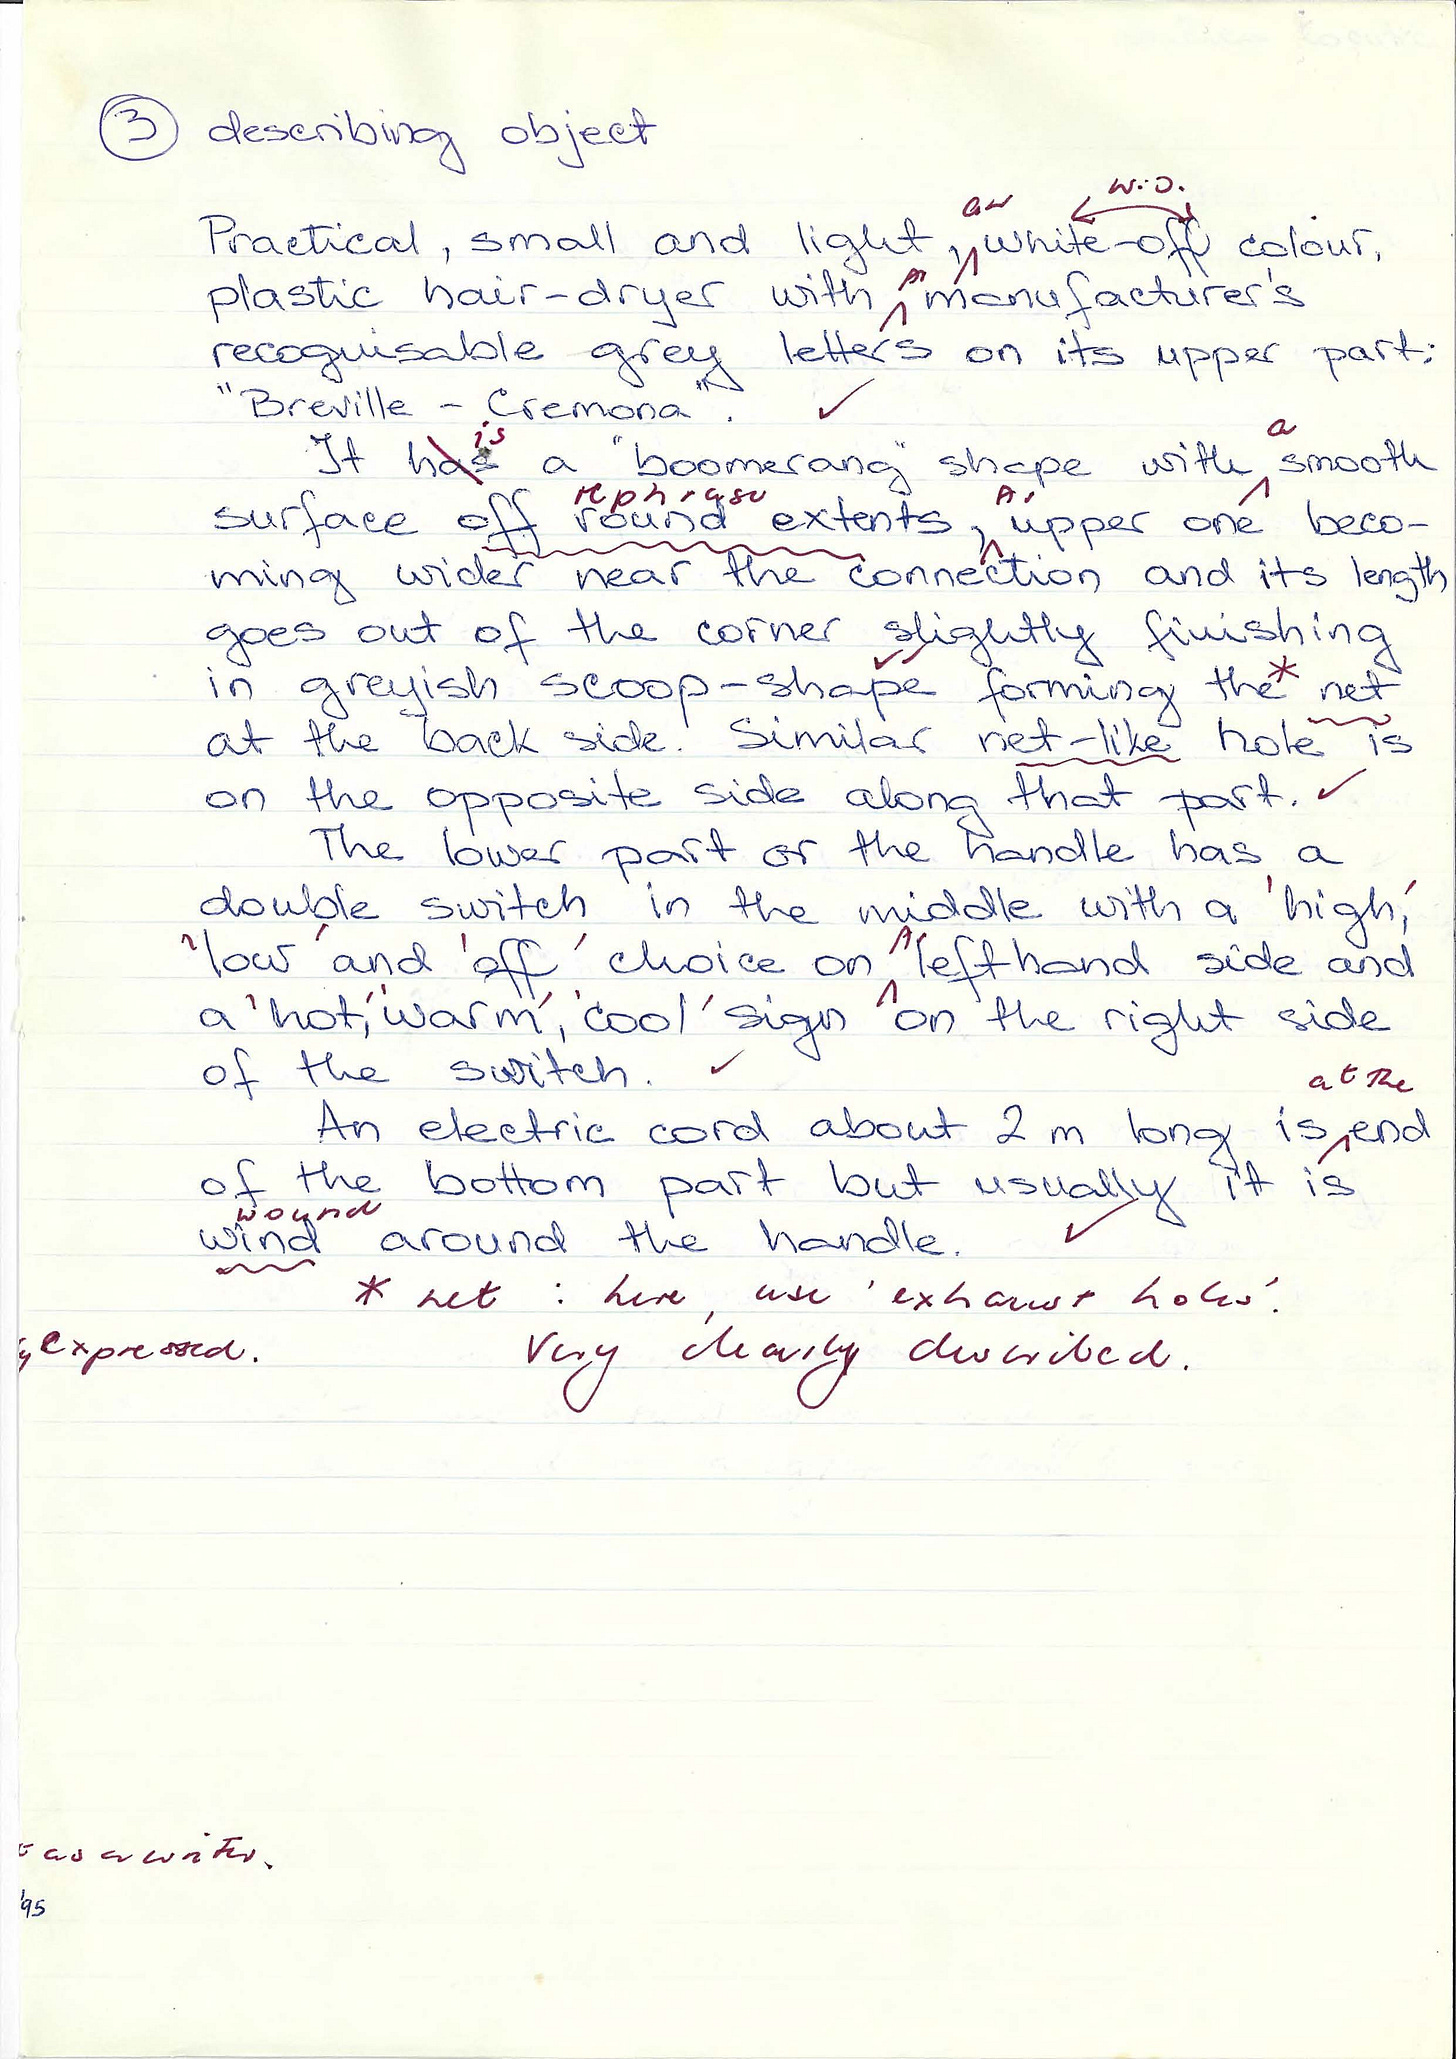 3 describing object
an W.O.
Practical, small and light, white-off colour,
plastic hair-dryer with manufacturer's
recognisable grey letters on its upper part:
"Breville - Cremona".
is a
It has a "boomerang" shape with smooth
rephrase
surface off round extents, upper one beco-
ming wider near the connection and its length
goes out of the corner slightly finishing
in greyish scoop-shape forming the * net
at the back side. Similar net-like hole is
on the opposite side along that part.
The lower part or the handle has a
double switch in the middle with a 'high',
'low' and 'off' choice on lefthand side and
a 'hot', 'warm', 'cool' sign on the right side
of the switch.
at the
An electric cord about 2 m long is end
of the bottom part but usually it is
wound
wind around the handle.
* net : here, use 'exhaust holes'.
expressed. Very clearly described.
as a writer.
'95